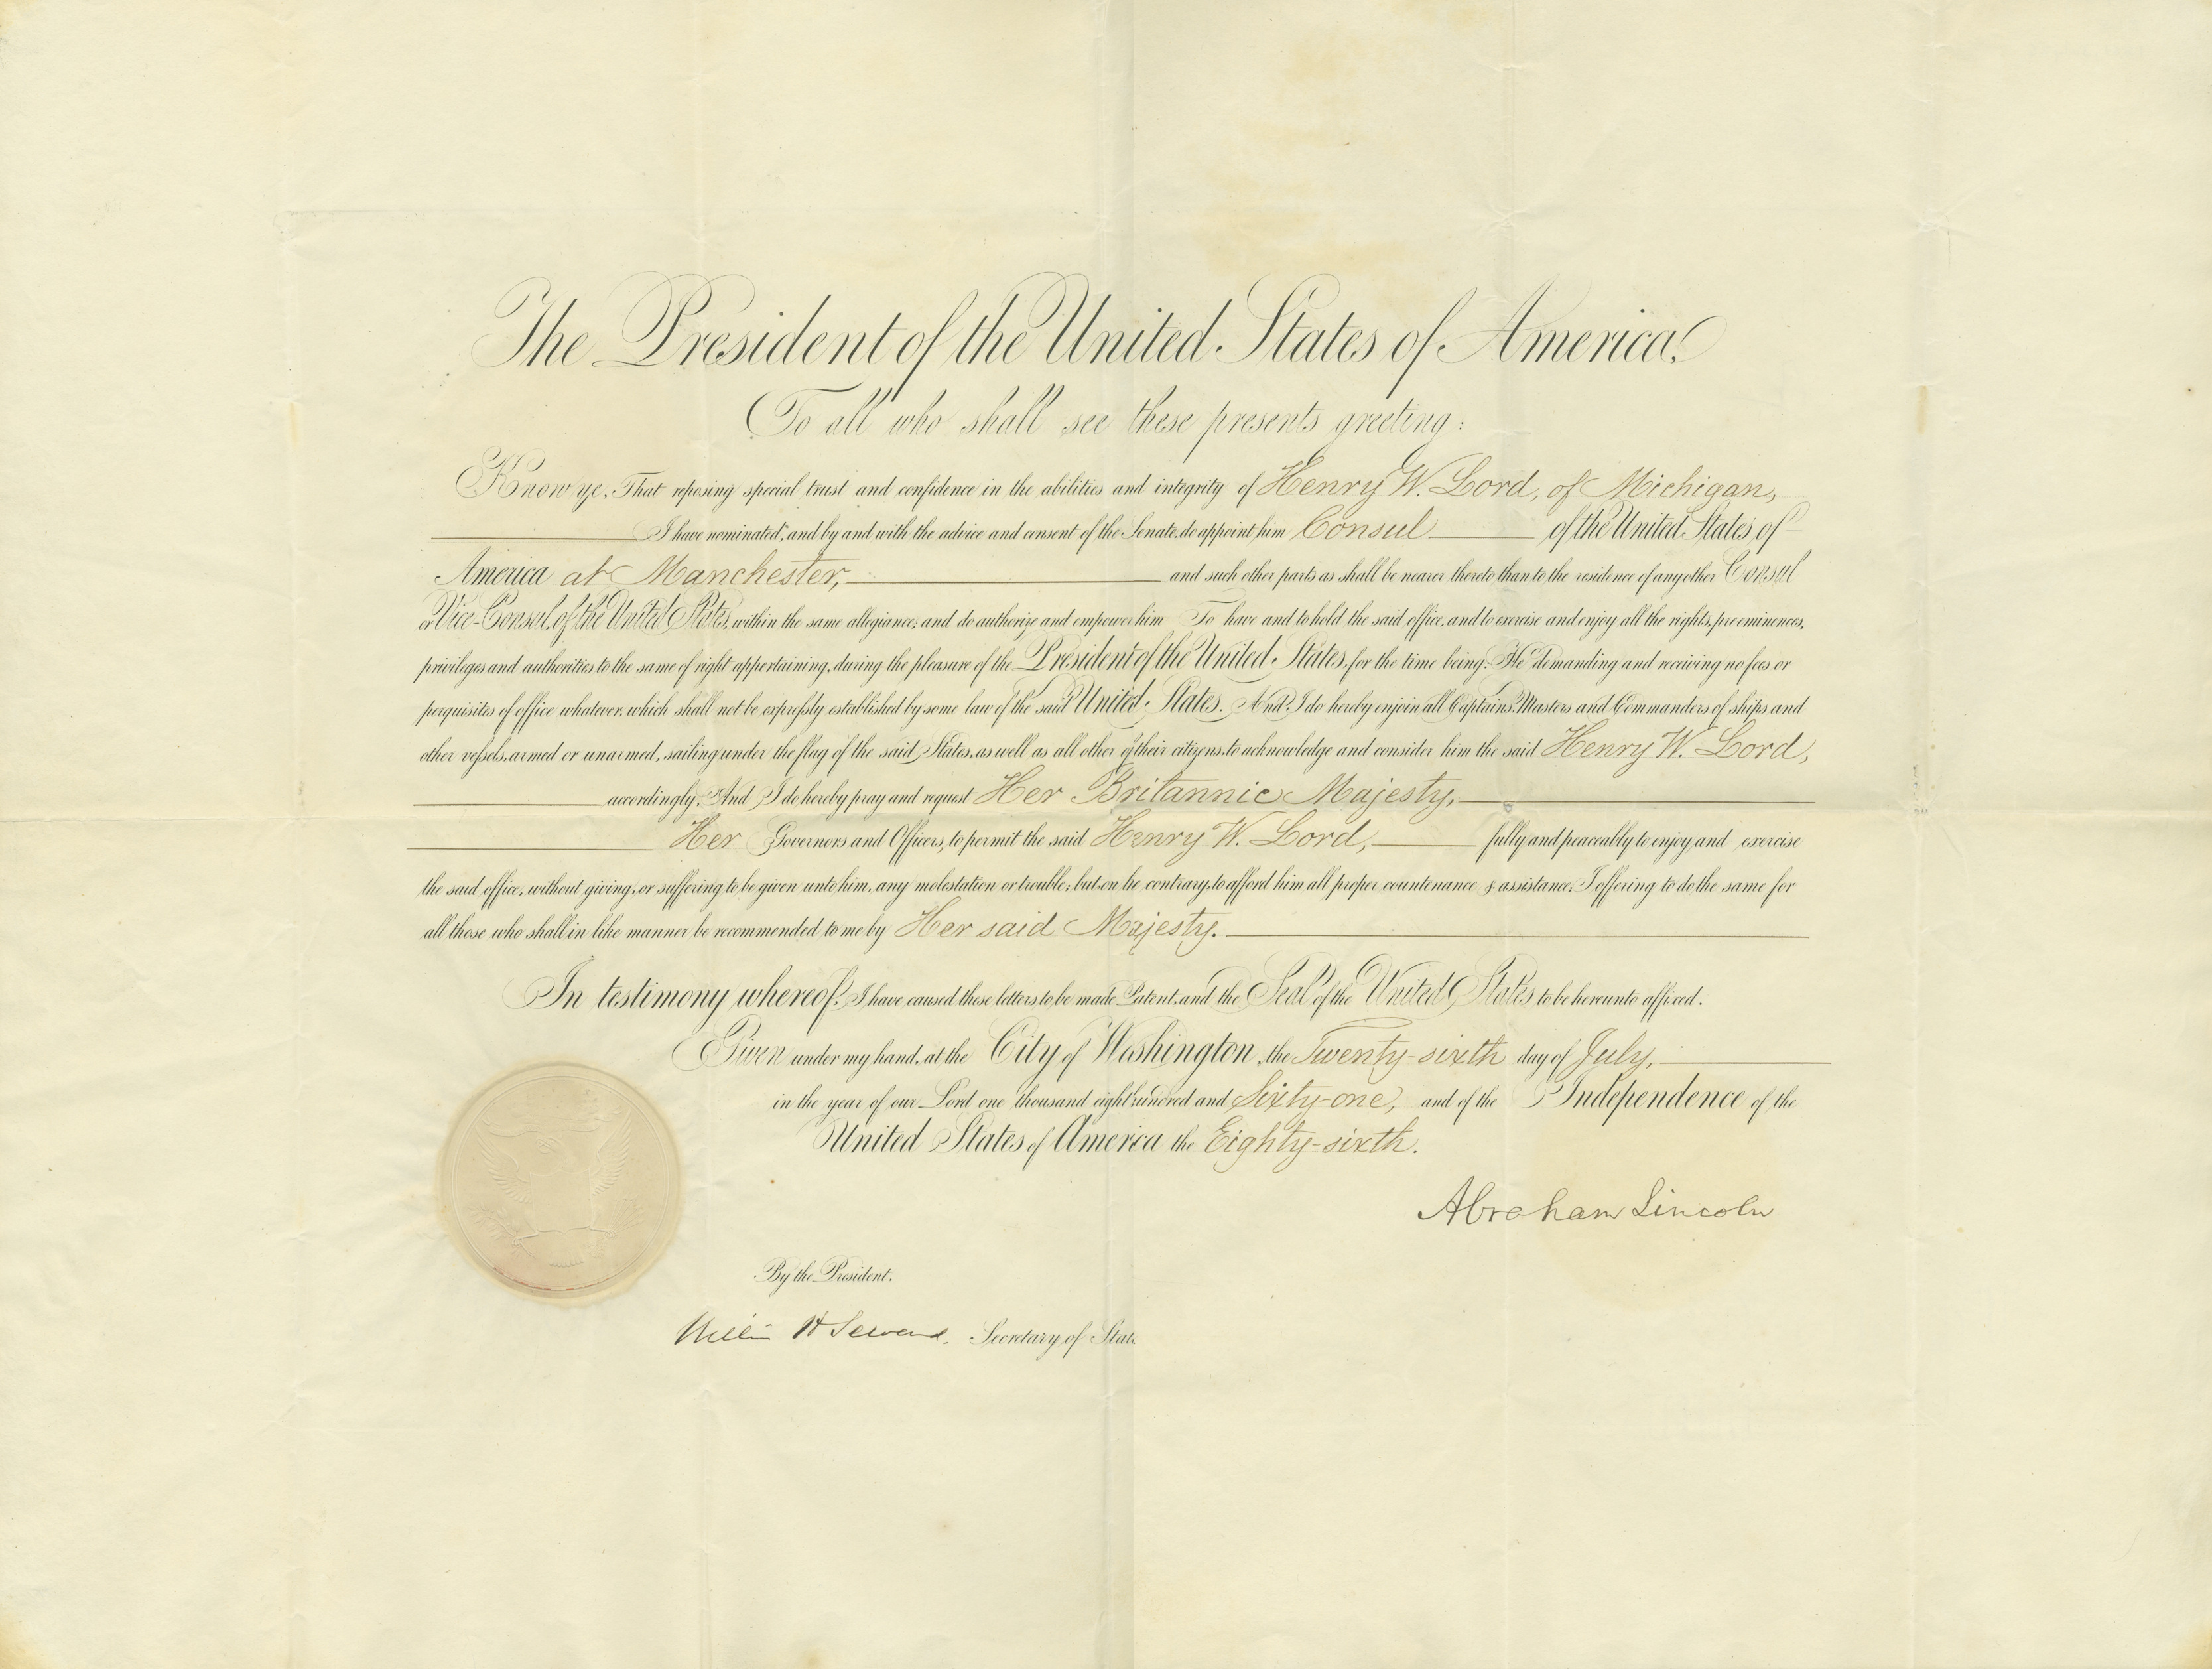 The President of the United States of America,
To all who shall see these presents greeting:
Know ye, That reposing special trust and confidence in the abilities and integrity of Henry W. Lord, of Michigan,
I have nominated, and by and with the advice and consent of the Senate, do appoint him Consul of the United States of
America at Manchester, and such other parts as shall be nearer thereto than to the residence of any other Consul
or Vice-Consul of the United States, within the same allegiance; and do authorize and empower him To have and to hold the said office, and to exercise and enjoy all the rights, preeminences,
privileges and authorities to the same of right appertaining, during the pleasure of the President of the United States, for the time being: He demanding and receiving no fees or
perquisites of office whatever, which shall not be expressly established by some law of the said United States. And I do hereby enjoin all Captains, Masters and Commanders of ships and
other vessels, armed or unarmed, sailing under the flag of the said States, as well as all other of their citizens, to acknowledge and consider him the said Henry W. Lord,
accordingly. And I do hereby pray and request Her Britannic Majesty,
Her Governors and Officers, to permit the said Henry W. Lord, fully and peaceably to enjoy and exercise
the said office, without giving, or suffering to be given unto him, any molestation or trouble; but on he contrary, to afford him all proper countenance & assistance; I offering to do the same for
all those who shall in like manner be recommended to me by Her said Majesty.
In testimony whereof, I have caused these letters to be made Patent, and the Seal of the United States to be hereunto affixed.
Given under my hand, at the City of Washington, the Twenty-sixth day of July,
in the year of our Lord one thousand eight hundred and Sixty-one, and of the Independence of the
United States of America the Eighty-sixth.
Abraham Lincoln
By the President.
William H Seward. Secretary of State